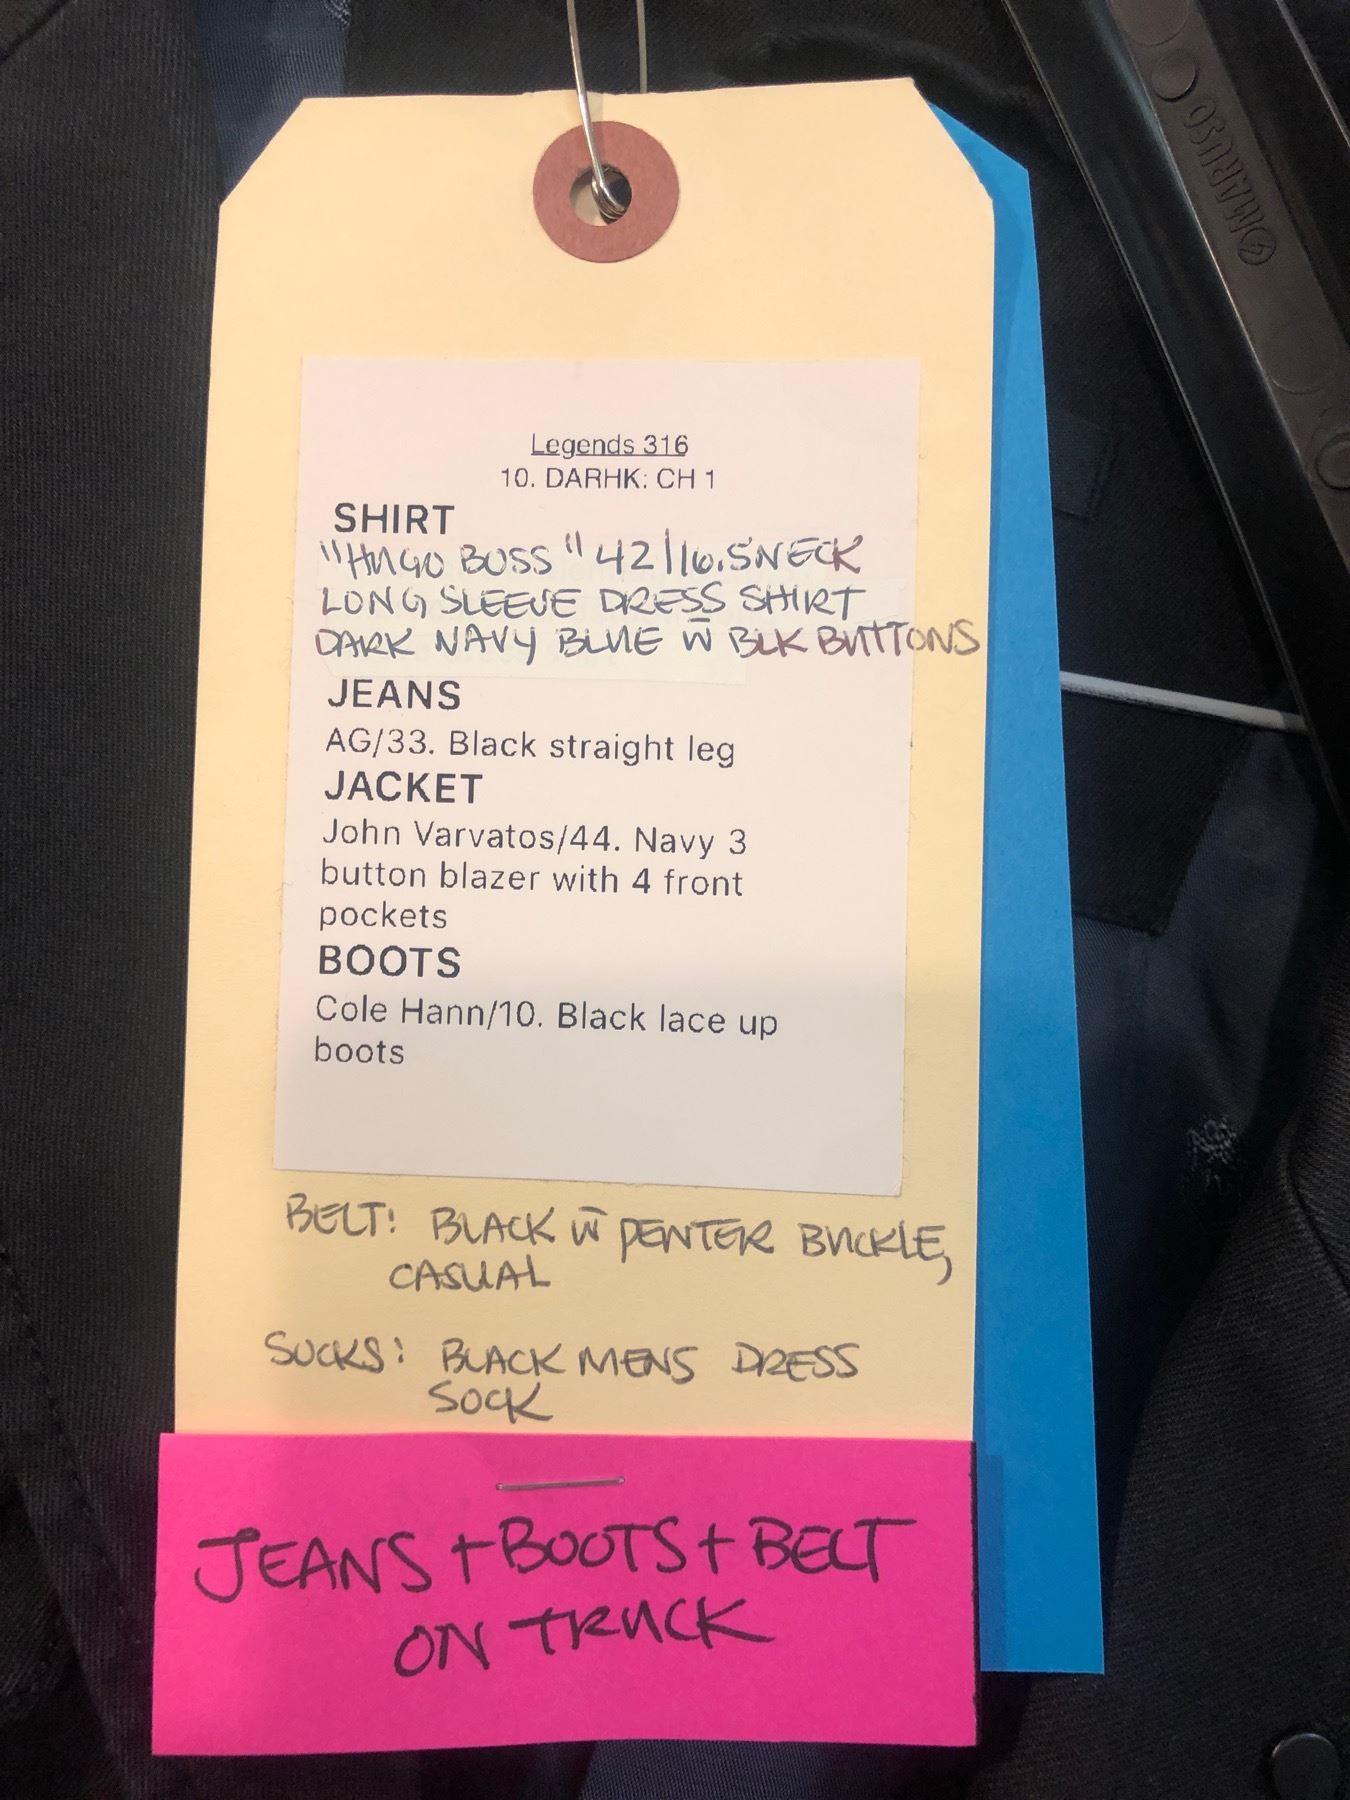 OMARUSO
Legends 316
10. DARHK: CH 1
SHIRT
"HUGO BOSS" 42/16.5 NECK
LONG SLEEVE DRESS SHIRT
DARK NAVY BLUE W̄ BLK BUTTONS
JEANS
AG/33. Black straight leg
JACKET
John Varvatos/44. Navy 3
button blazer with 4 front
pockets
BOOTS
Cole Hann/10. Black lace up
boots
BELT: BLACK W̄ PEWTER BUCKLE,
CASUAL
SOCKS: BLACK MENS DRESS
SOCK
JEANS + BOOTS + BELT
ON TRUCK